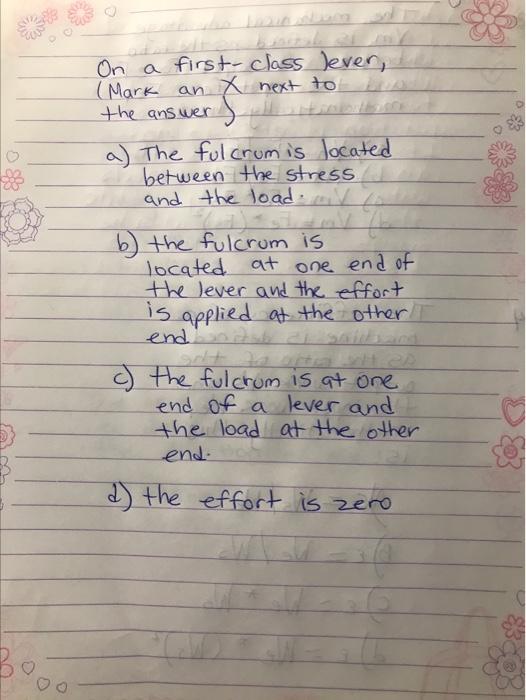 On a first-class lever,
(Mark an X next to
the answer)
a) The fulcrum is located
between the stress
and the load.
b) the fulcrum is
located at one end of
the lever and the effort
is applied at the other
end
c) the fulcrum is at one
end of a lever and
the load at the other
end.
d) the effort is zero